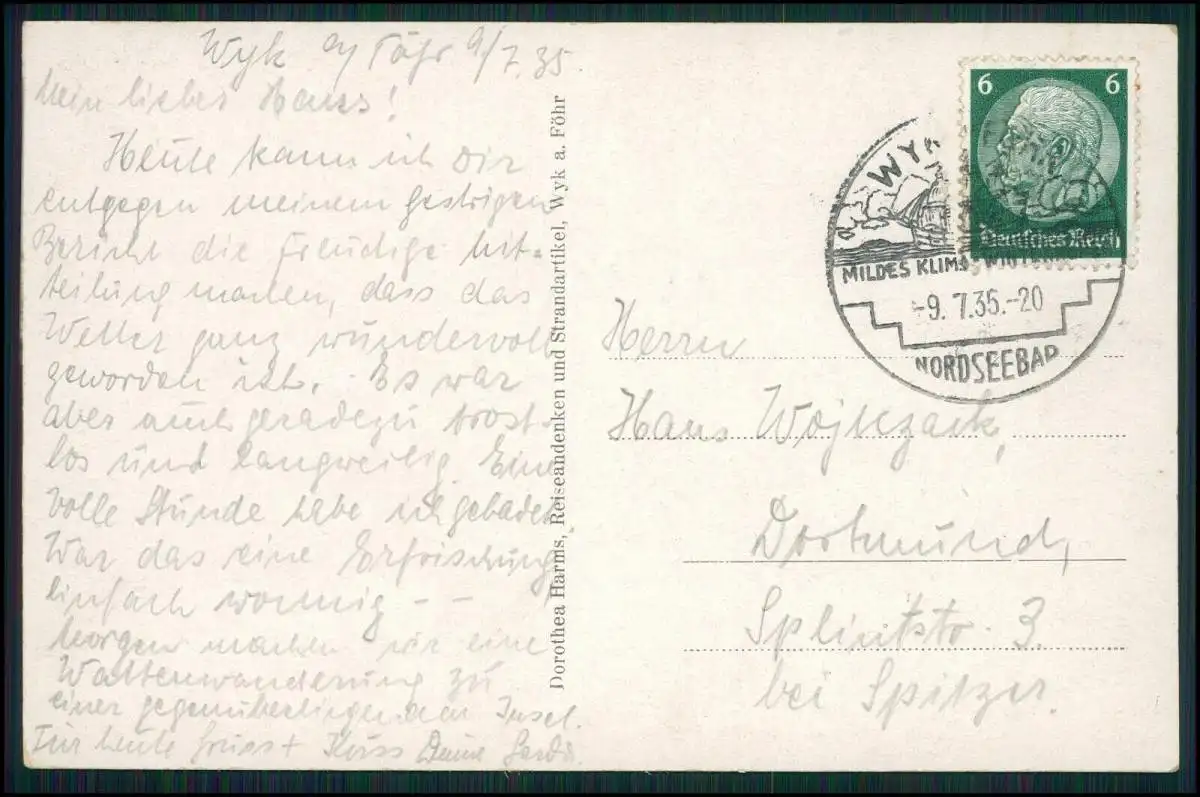 Wyk a/ Föhr 9/7.35.
Mein lieber Hans!
Heute kann ich Dir
entgegen meinem gestrigen
Bericht die freudige Mit-
teilung machen, dass das
Wetter ganz wundervoll
geworden ist. Es war
aber auch geradezu trost-
los und langweilig. Eine
volle Stunde habe ich gebadet.
War das eine Erfrischung
einfach wonnig - -
Morgen machen wir eine
Wattenwanderung zu
einer gegenüberliegenden Insel.
Für heute Gruss + Kuss Deine
Dorothea Harms, Reiseandenken und Strandartikel, Wyk a. Föhr
6 6
Deutsches Reich
WYK
MILDES KLIMA
-9.7.35.-20
NORDSEEBAD
Herrn
Hans Wojtczack,
Dortmund,
Splintstr. 3.
bei Spitzer.